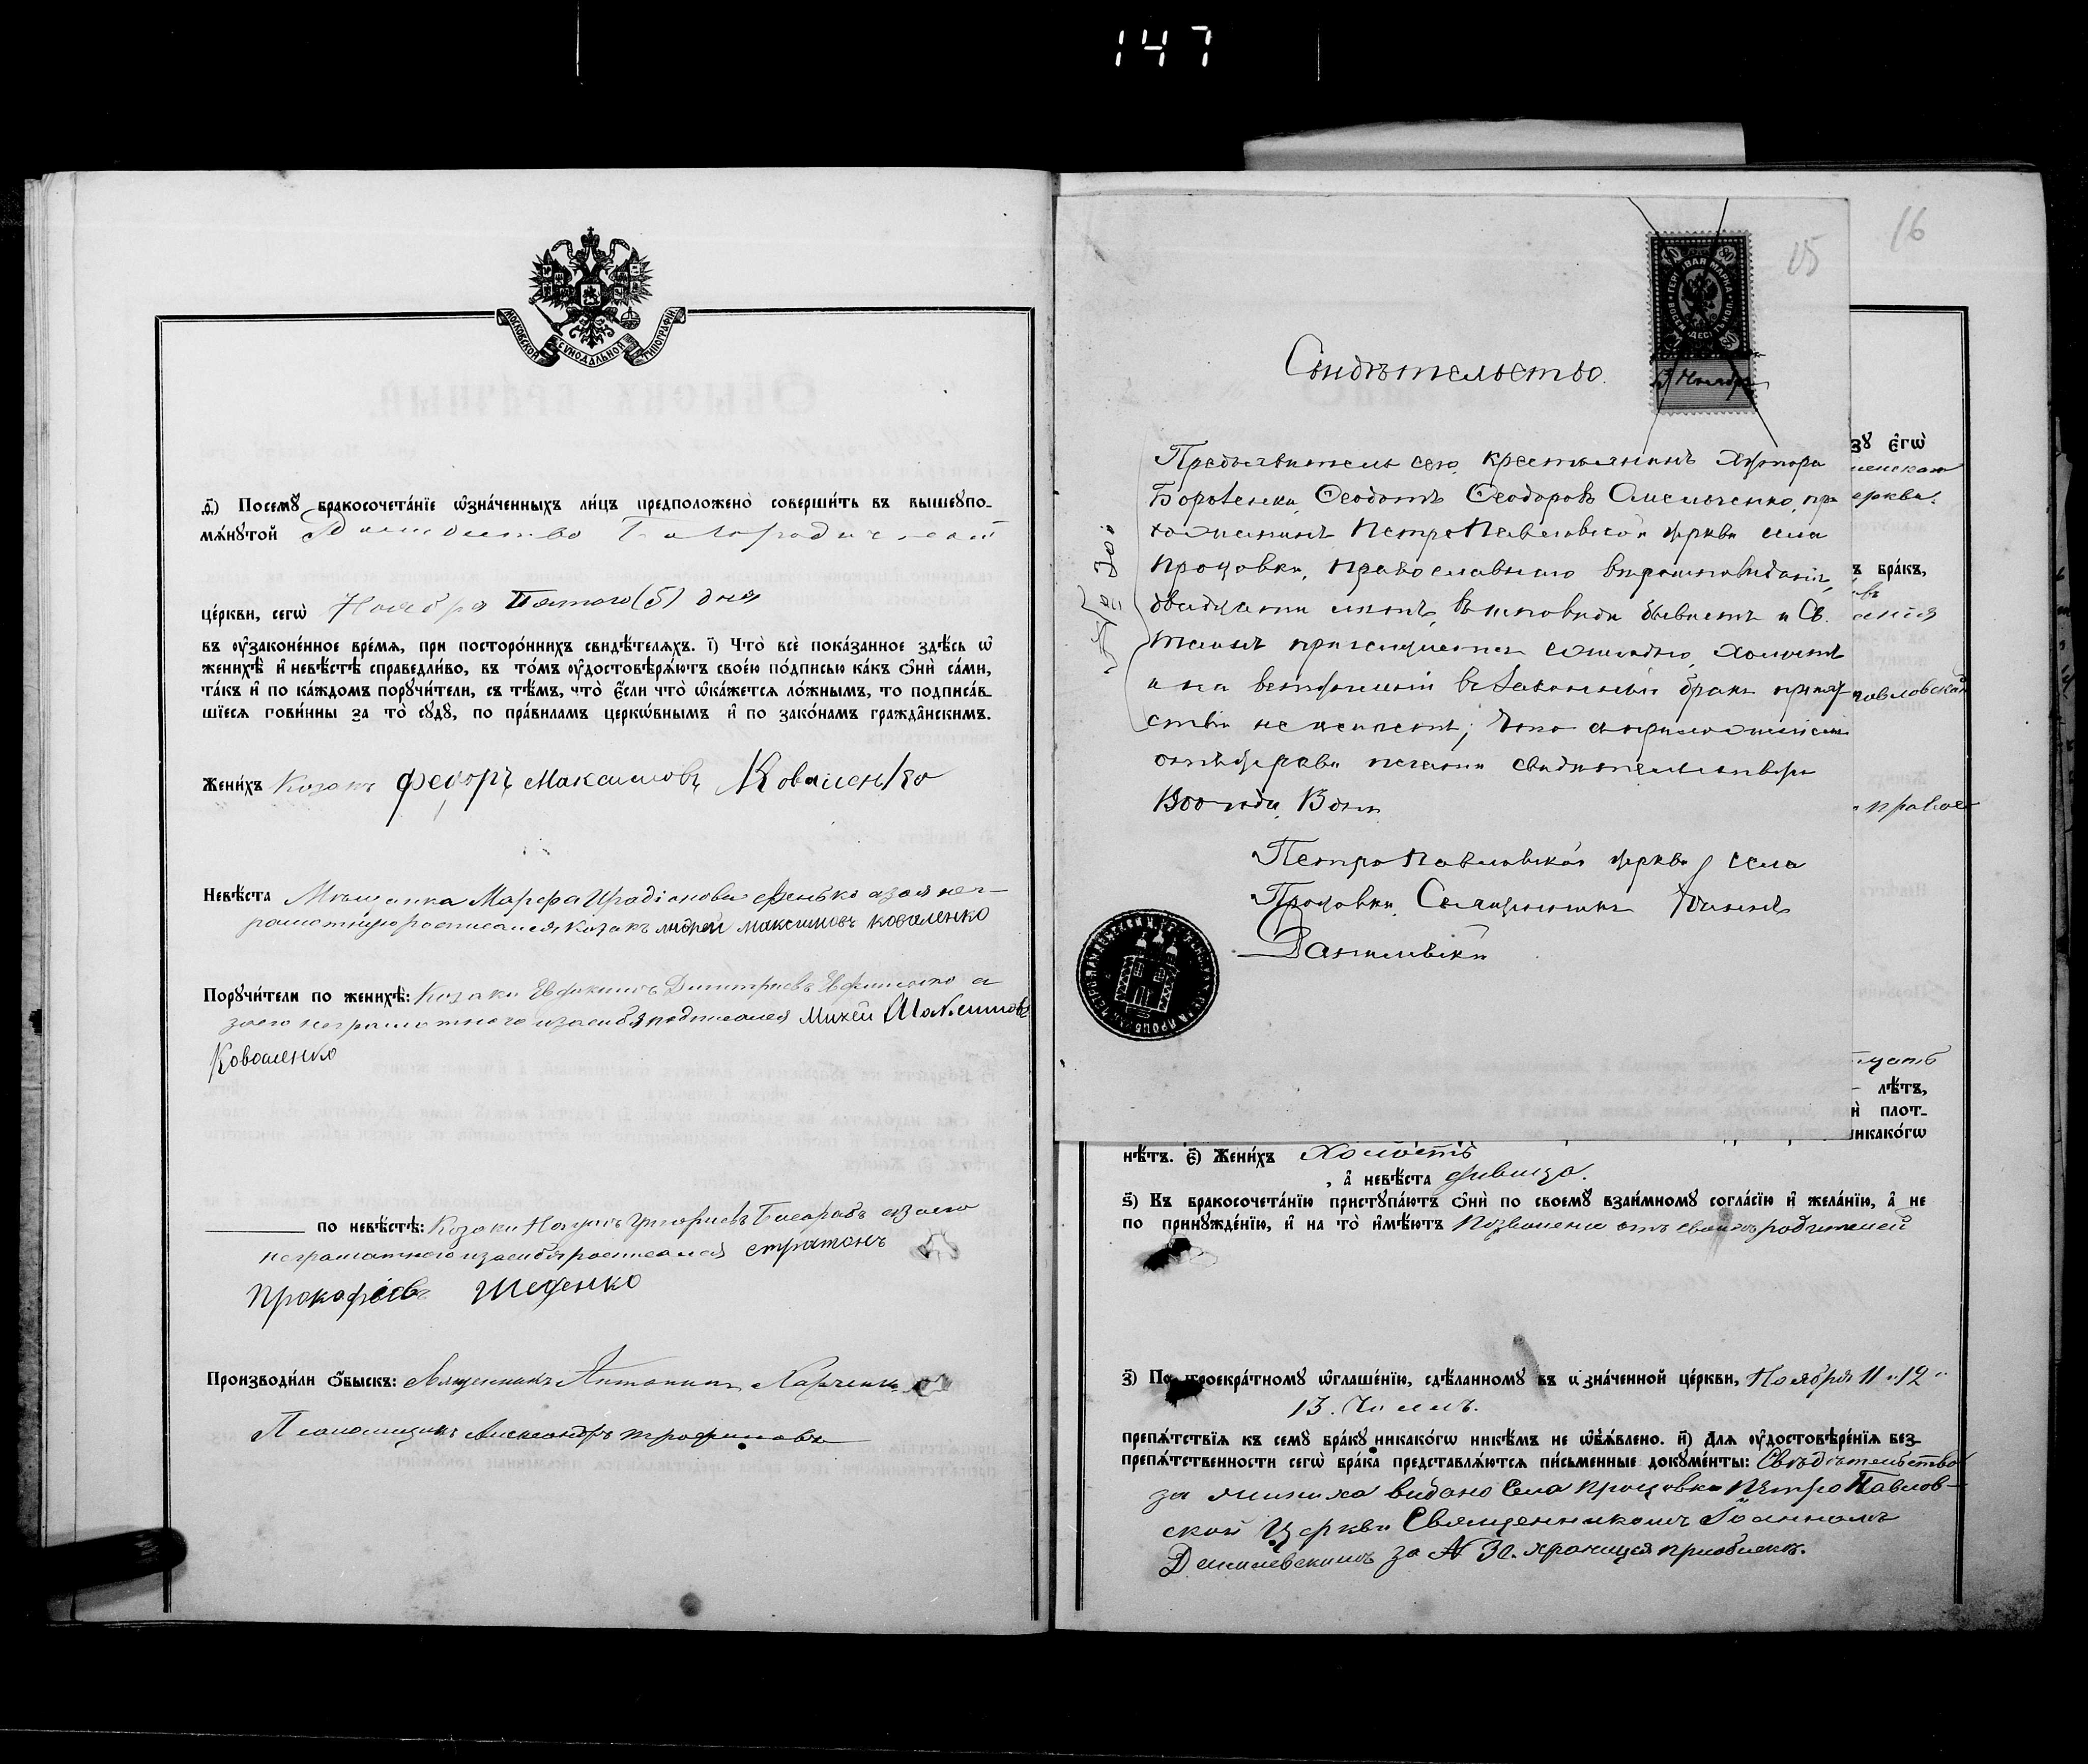 147
МОСКОВСКОЙ СУНОДАЛЬНОЙ ТИПОГРАФІИ
д҃і) Посемꙋ̀ бракосочета́нїе ѡ҆зна́ченныхъ ли́цъ предположено̀ соверши́ть въ вышеꙋпо-
мѧ́нꙋтой
це́ркви, сегѡ̀ Ноября Пятаго (5) дня
въ ᲂу҆законе́нное вре́мѧ, при посторо́ннихъ свидѣ́телѧхъ. і҃) Что̀ всѐ пока́занное здѣ́сь ѡ҆
женихѣ̀ и҆ невѣ́стѣ справедли́во, въ то́мъ ᲂу҆достовѣрѧ́ютъ свое́ю по́дписью ка́къ ѻ҆нѝ са́ми,
та́къ и҆ по ка́ждомъ порꙋчи́тели, съ тѣ́мъ, что̀ є҆́сли что̀ ѡ҆ка́жется ло́жнымъ, то подписа́в-
шїеся пови́нны за то̀ сꙋдꙋ̀, по пра́виламъ церкѡ́внымъ и҆ по зако́намъ гражда̂нскимъ.
Жени́хъ Козакъ Федоръ Максимовъ Коваленко
Невѣ́ста Мѣщанка Марфа Иродіонова а за нея нег-
рамотную росписался козакъ Андрей Максимовъ Коваленко
Порꙋчи́тели по женихѣ̀: Козаки Евфимъ Димитріевъ а
за его неграмотного и за себя подписался Михей Максимовъ
Коваленко
по невѣ́стѣ: Козаки Наумъ Григоріевъ а за его
неграмотного и за себя росписался Стратонъ
Прокофіевъ Шефенко
Производи́ли ѻ҆́быскъ: Священникъ Антонинъ Харченко
Псаломщикъ Александръ Трофимовъ
16
15
ГЕРБОВАЯ МАРКА
13 Ноября
Свидѣтельство.
Предъявитель сего, крестьянинъ Хутора
Ѳеодотъ Ѳеодоровъ Омельченко, при
хожанинъ Петро Павловской церкви села
Процовки, православнаго вѣроисповѣданія,
двадцати лѣтъ, въ исповѣди бываетъ и Св.
Таинъ причащается ежегодно, холостъ
и на вступленіи въ законный бракъ препят
ствія не имѣетъ; что съ приложеніемъ
церкви печати свидѣтельствую
1900 года,
Петро Павловской церкви села
Процовки, Священникъ Іоаннъ
Данилевскій
№ 30:
зꙋ̀ є҆гѡ̀
церкви.
ъ бра́къ,
лѣ́тъ,
и҆ плот-
никако́гѡ
нѣ́тъ. є҃) Жени́хъ Холостъ
, а҆ невѣ́ста дѣвица.
ѕ҃) Къ бракосочета́нїю пристꙋпа́ютъ ѻ҆нѝ по своемꙋ̀ взаи́мномꙋ согла́сїю и҆ жела́нїю, а҆ не
по принꙋжде́нїю, и҆ на то̀ и҆мѣ́ютъ позволение отъ своихъ родителей
з҃) По троекра́тномꙋ ѡ҆глаше́нїю, сдѣ́ланномꙋ въ ѡ҆зна́ченной це́ркви, Ноября 11 и 12 и
13. Числъ.
препѧ́тствїѧ къ семꙋ̀ бра́кꙋ никако́гѡ никѣ́мъ не ѡ҆бъѧ́влено. и҃) Для ᲂу҆достовѣре́нїѧ без-
препѧ́тственности сегѡ̀ бра́ка представлѧ́ются пи́сьменные докꙋме́нты: Свѣдѣтельство
за жениха видано Села Процовки Петро Павлов-
ской Церкви Священникомъ Іоанномъ
Данилевскимъ за № 30. хранится при обыскѣ.